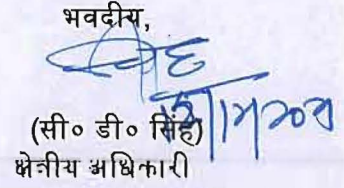 भवदीय,
(सी० डी० सिंह)
क्षेत्रीय अधिकारी